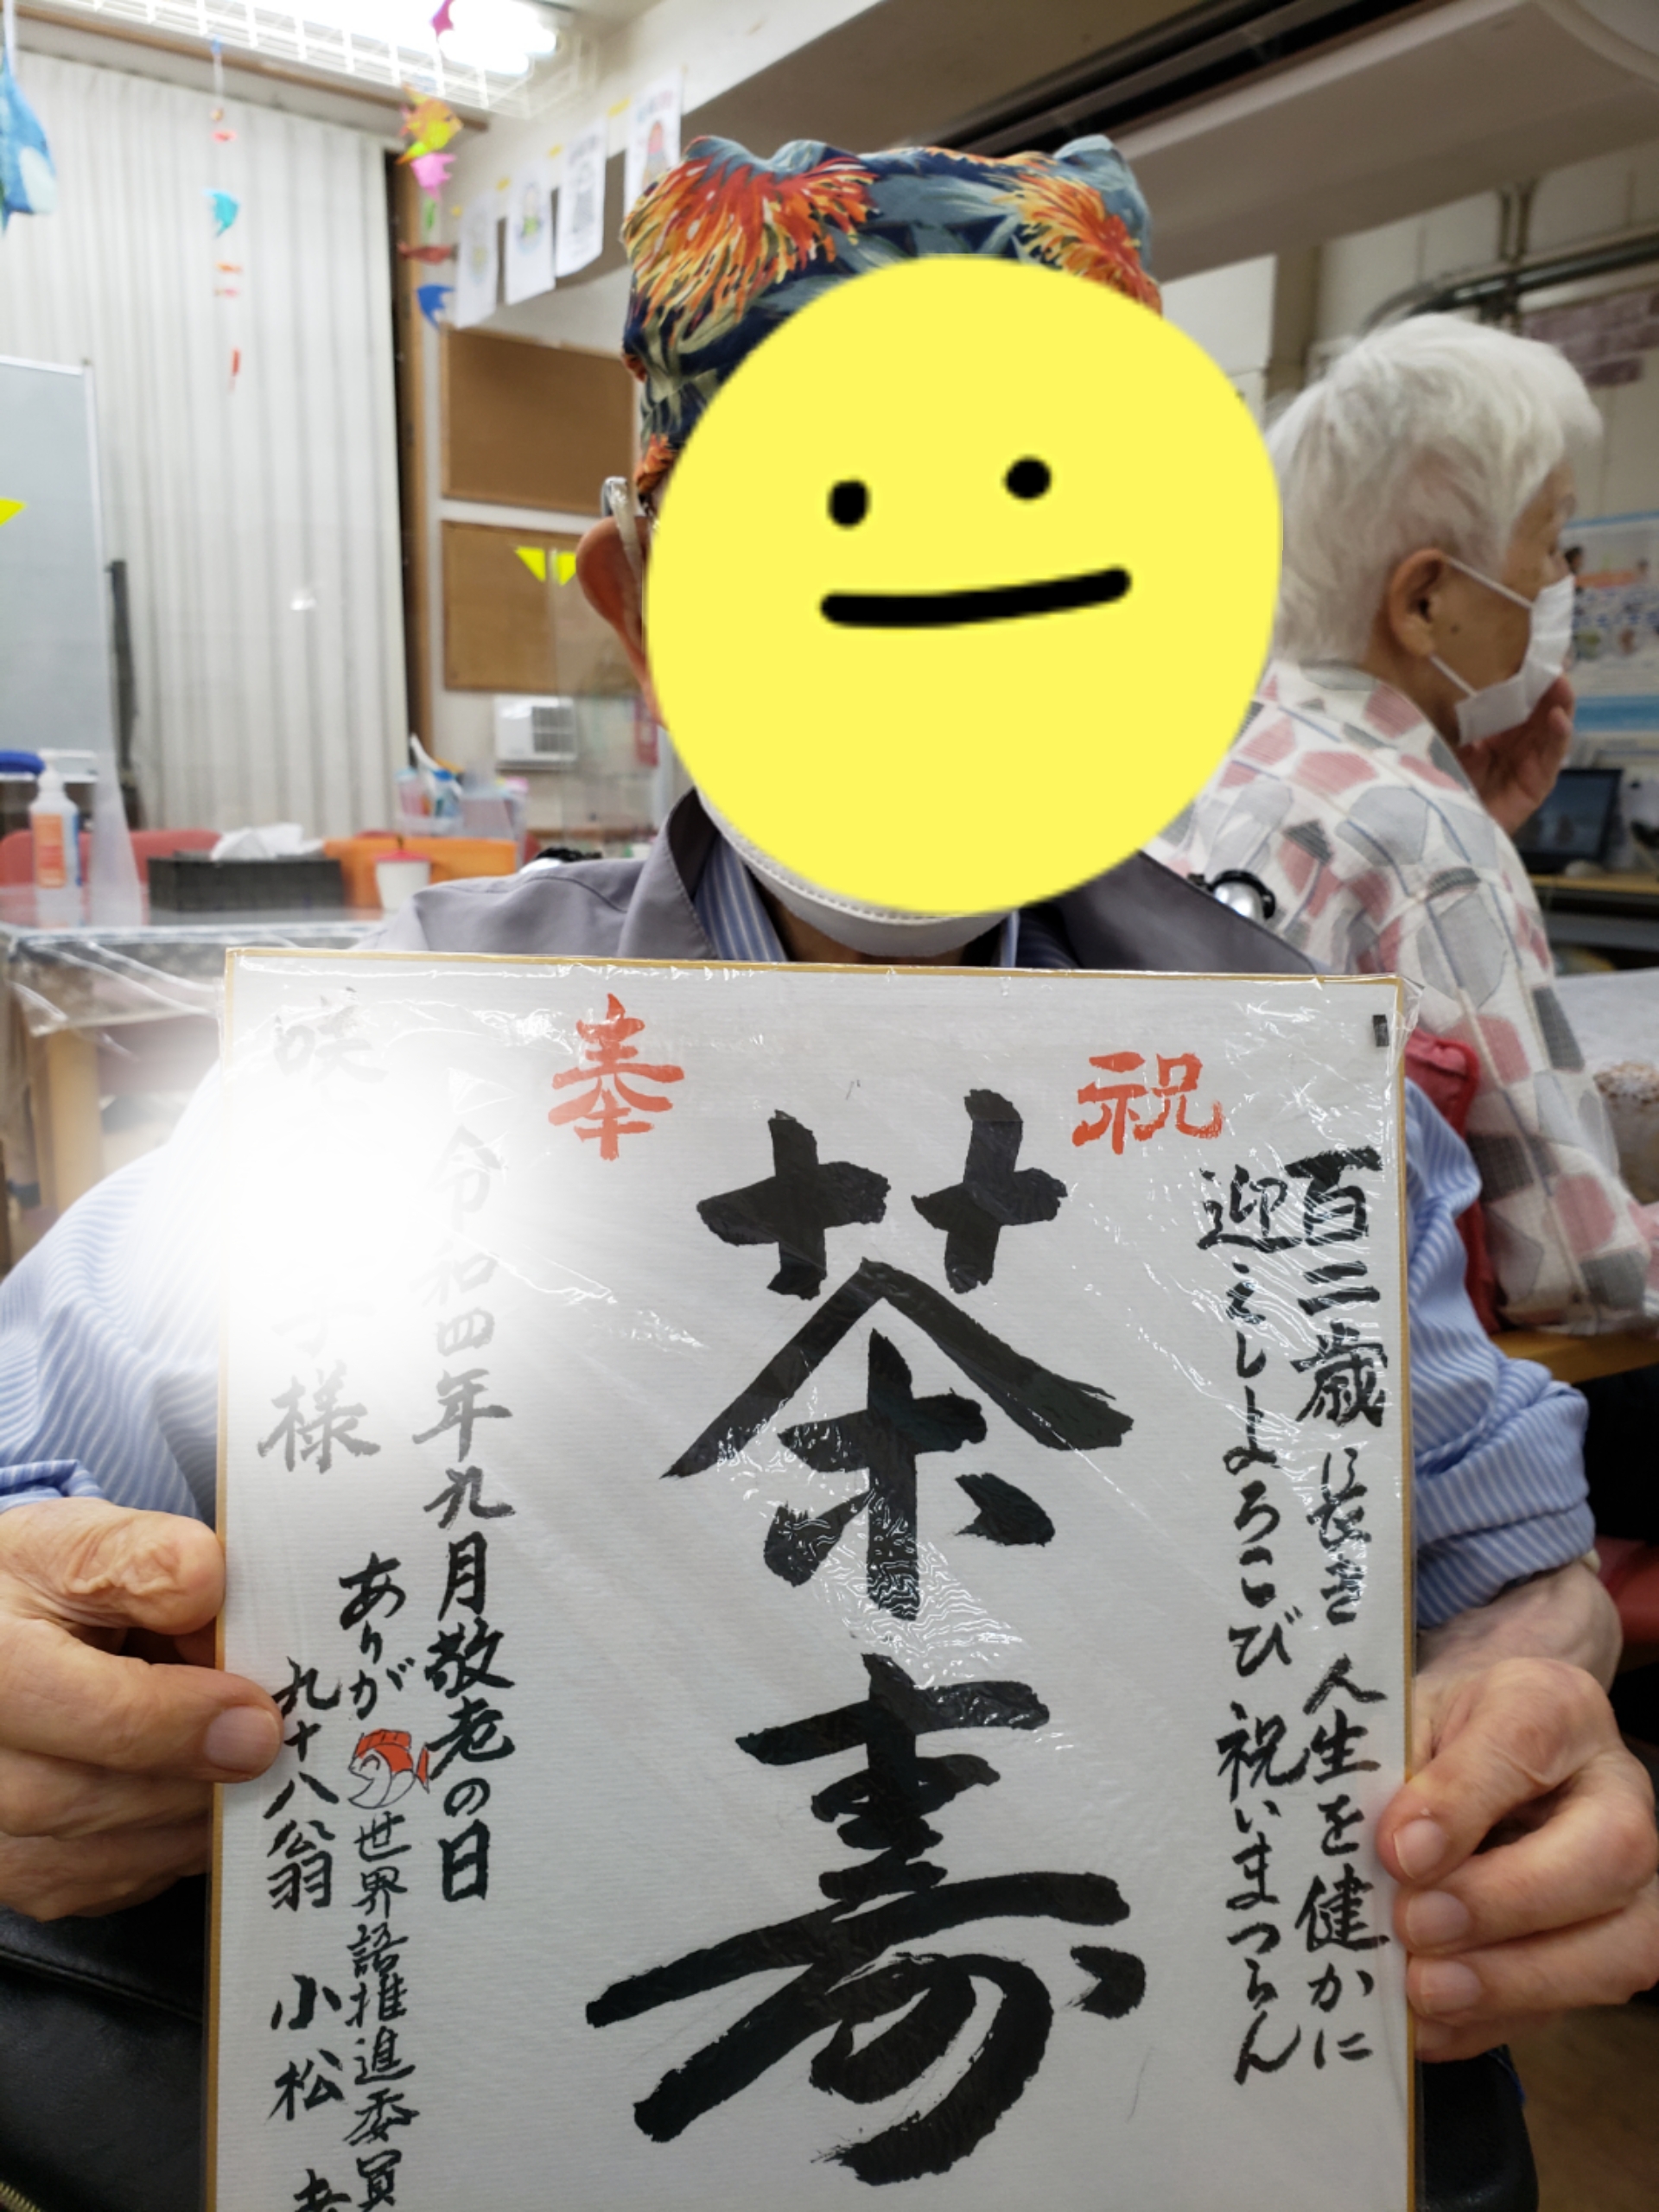 祝
奉
百二歳に長き人生を健かに
迎えしよろこび祝いまつらん
茶寿
令和四年九月敬老の日
子様
ありが
世界語推進委員
九十八翁 小松